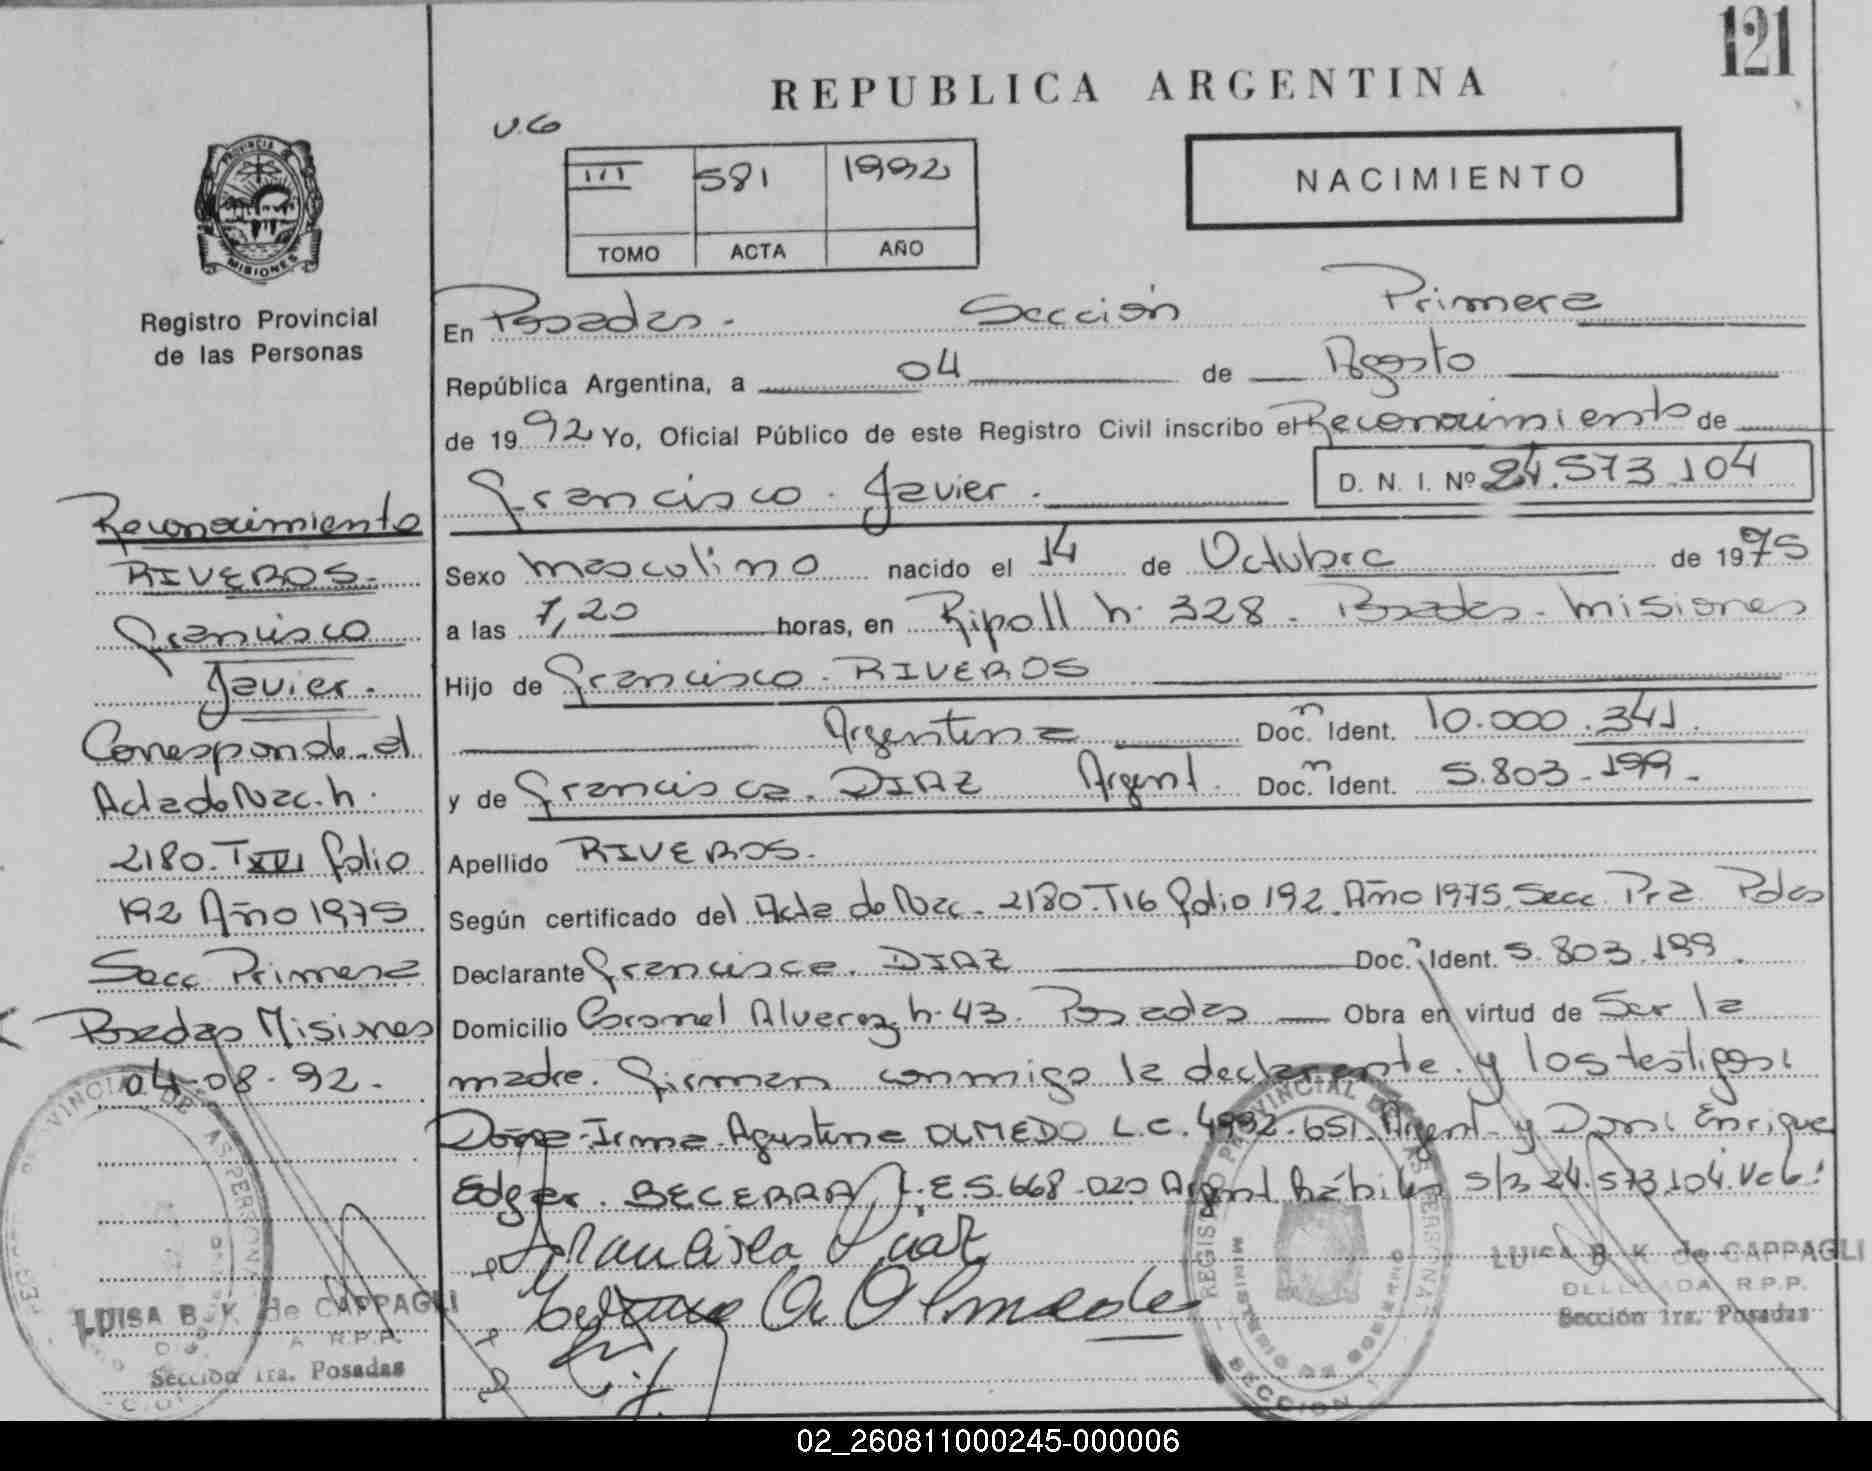 121
REPUBLICA ARGENTINA
V.6
III 581 1992
TOMO ACTA AÑO
NACIMIENTO
PROVINCIA DE MISIONES
Registro Provincial
de las Personas
Reconocimiento
RIVEROS.
Francisco
Javier.
Corresponde al
Acta de Nac. n.
2180. T XVI folio
192 Año 1975
Secc Primera
Posadas Misiones
04-08-92.
LUISA B. K. de CAPPAGLI
R.P.P.
Sección 1ra. Posadas
En Posadas.- Sección Primera
República Argentina, a 04 de Agosto
de 1992 Yo, Oficial Público de este Registro Civil inscribo el Reconocimiento de
Francisco. Javier. D. N. I. Nº 24.573.104
Sexo masculino nacido el 14 de Octubre de 1975
a las 7,20 horas, en Ripoll n. 328. Posadas - Misiones
Hijo de Francisco. RIVEROS
Argentina Doc. Ident. 10.000.341.
y de Francisca. DIAZ Argent. Doc. Ident. 5.803.199.
Apellido RIVEROS.
Según certificado del Acta de Nac. 2180. T16 folio 192. Año 1975. Secc. Pra. Pdas
Declarante Francisca. DIAZ Doc. Ident. 5.803.199.
Domicilio Coronel Alvarez n. 43. Posadas Obra en virtud de Ser la
madre. Firman conmigo la declarante. y los testigos:
Doña Irma Agustina OLMEDO L.C. 4992.651. Argent. y Don: Enrique
Edgar. BECERRA L.E. 5.668.020 Argent hábiles s/r 24.573.104. Vale:
Francisca Diaz
A Olmedo
REGISTRO PROVINCIAL DE LAS PERSONAS
MINISTERIO DE GOBIERNO
SECCION 1
LUISA B. K. de CAPPAGLI
DELEGADA R.P.P.
Sección 1ra. Posadas
02_260811000245-000006